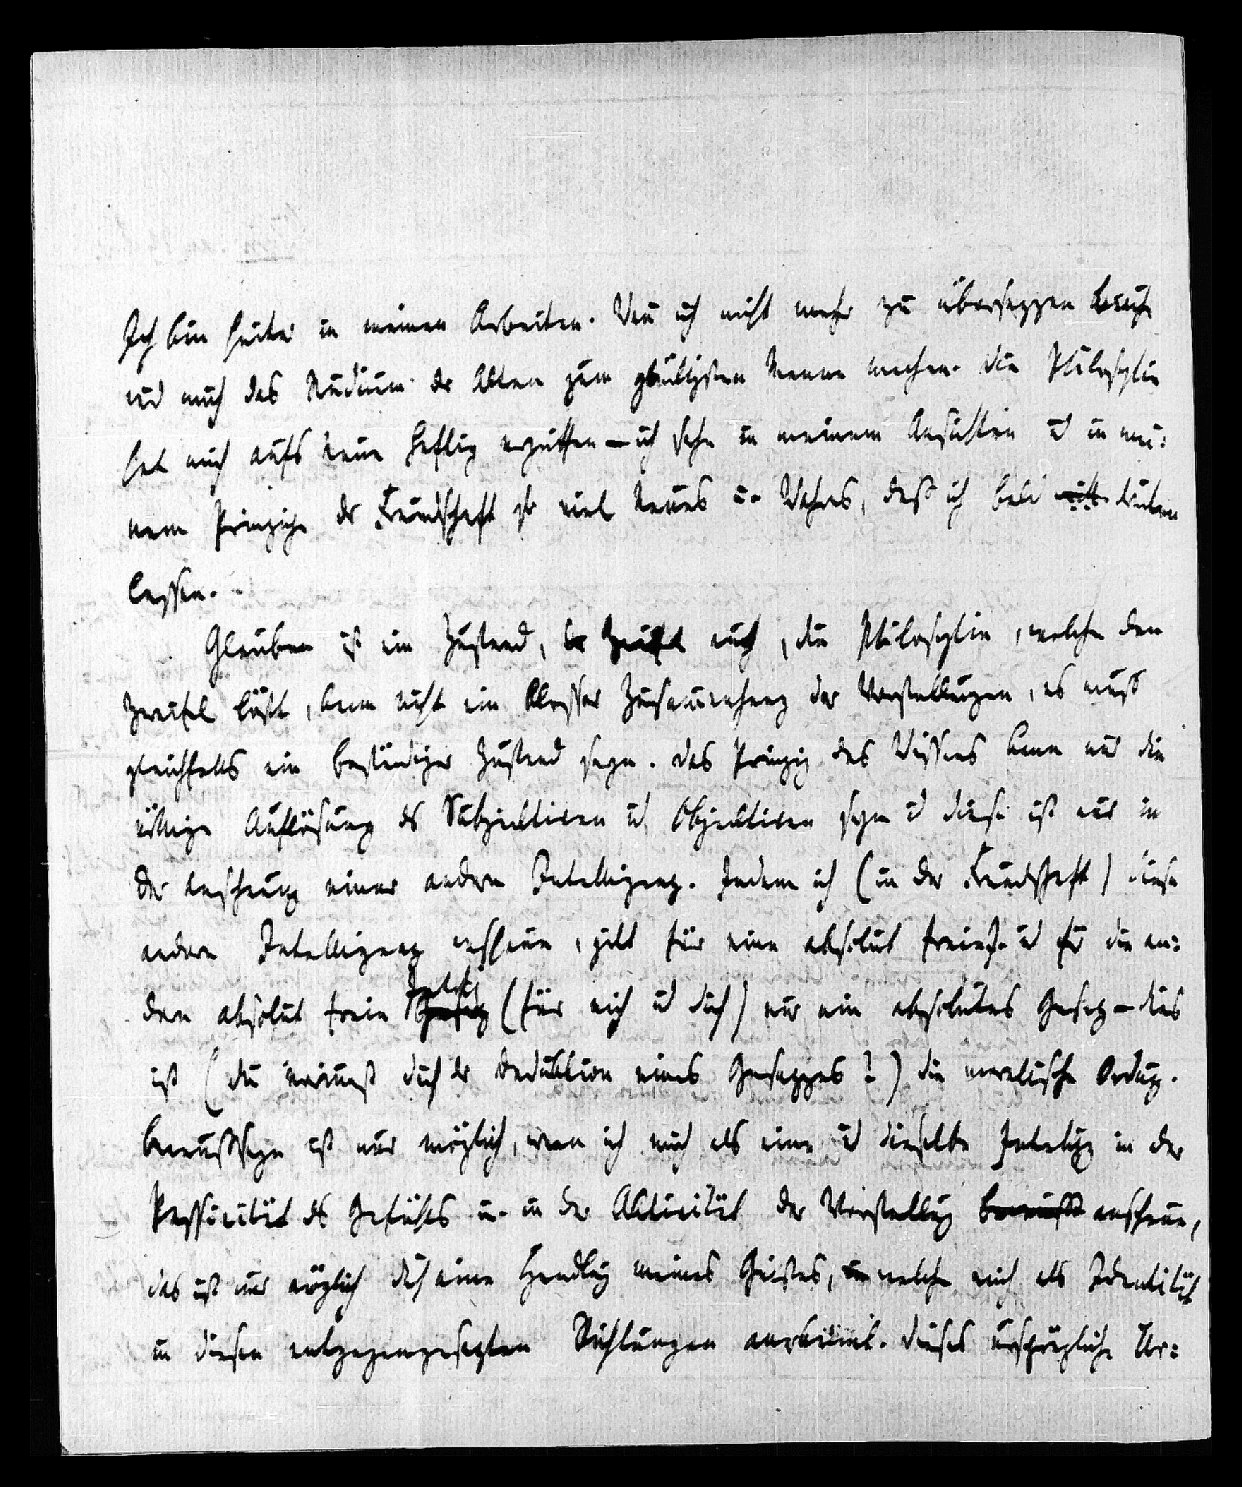 Ich bin heiter in meinen Arbeiten. Wenn ich nicht mehr zu übersezzen brauche
wird mich das Studium der Alten zum glücklichsten Manne machen. Die Philosophie
hat mich aufs neue heftig ergriffen – ich sehe in meinem Ansichten u in mei:
nem Prinzipe der Freundschaft so viel Neues u. Wahres, daß ich bald drucken
lasse. –
Glauben ist ein Zustand, Zweifel auch, die Philosophie, welche den
Zweifel löst, kann nicht ein blosser Zusammenhang der Vorstellungen, es muß
gleichfalls ein beständiger Zustand seyn. das Prinzip des Wissens kann nur die
völlige Auflösung des Subjectiven u Objectiven seyn u diese ist nur in
der Anschauung einer andern Intelligenz. Indem ich (in der Freundschaft) diese
andere Intelligenz anschaue, gilt für eine absolut freie u für die an:
dere absolut freie (für mich u dich) nur ein absolutes Gesetz – dies
ist (du erinnerst dich der Deduktion eines Gesezzes?) die moralische Ordnung.
Bewußtseyn ist nur möglich, wenn ich mich als eine u dieselbe Intelligenz in der
Passivität des Gefühls u. in der Aktivität der Vorstellung anschaue,
das ist nur möglich durch eine Handlung meines Geistes, welche mich als Identität
in diesen entgegengesetzten Richtungen anerkennt. dieses ursprüngliche Ur: